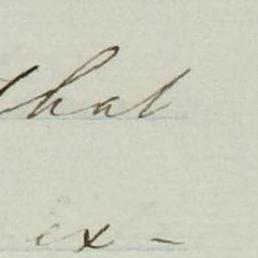 that
ex-